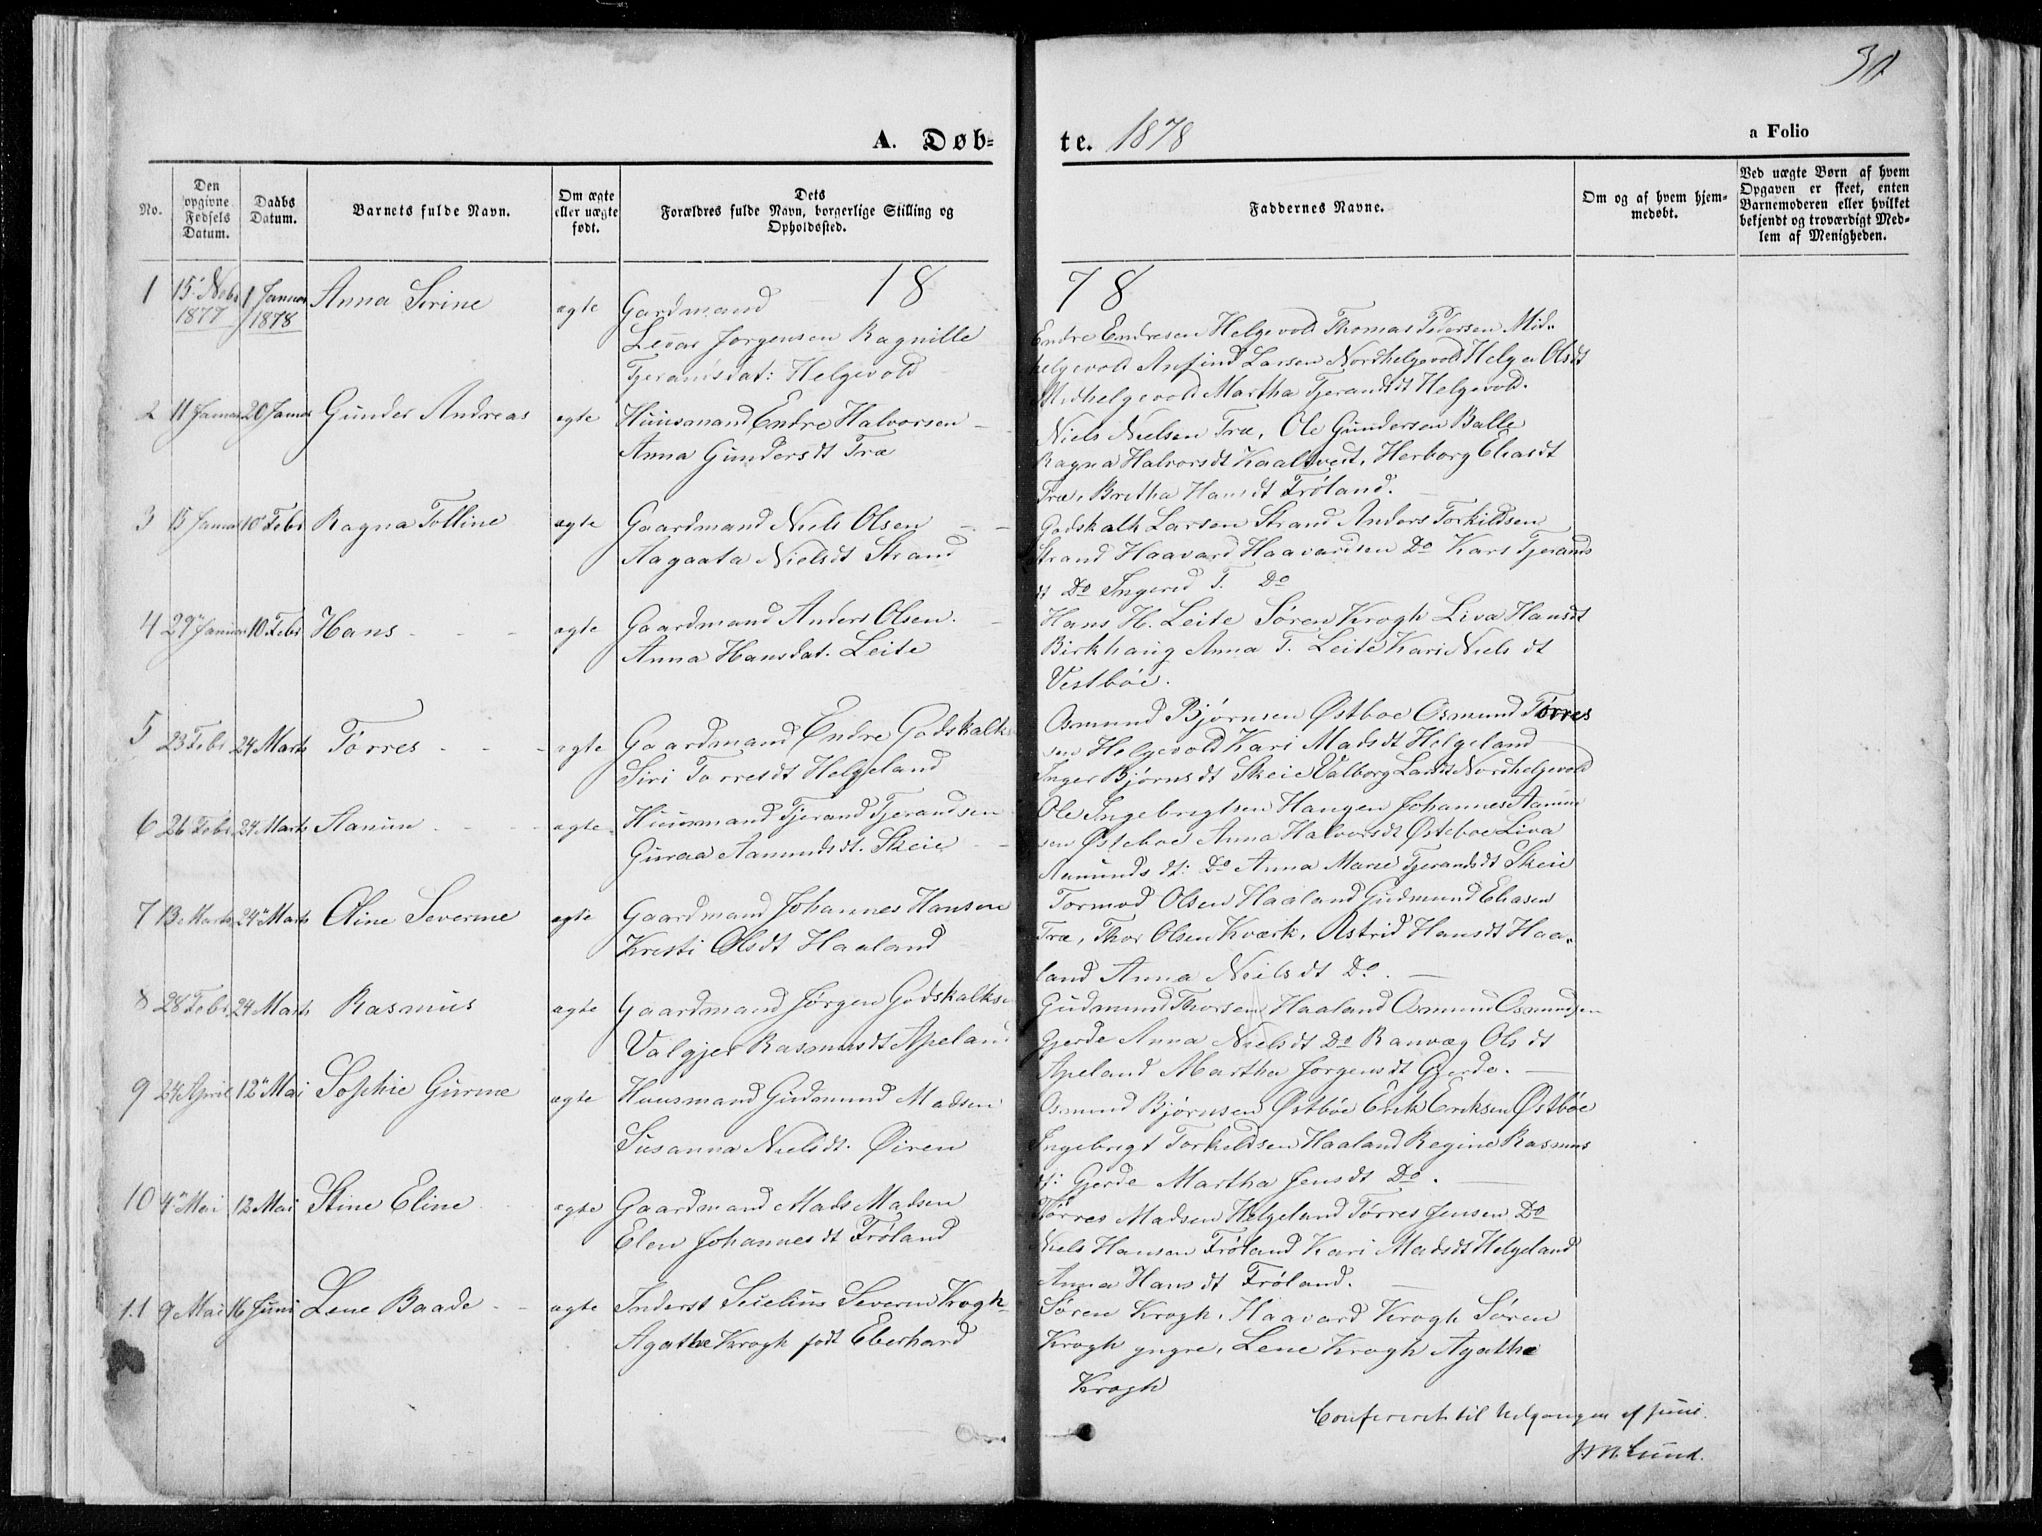 A. Døb-
te. 1878
a Folio
No.
Den opgivne Fødsels Datum.
Daabs Datum.
Barnets fulde Navn.
Om ægte eller uægte født.
Dets Forældres fulde Navn, borgerlige Stilling og Opholdssted.
Faddernes Navne.
Om og af hvem hjem-
medøbt.
Ved uægte Børn af hvem
Opgaven er skeet, enten
Barnemoderen eller hvilket
bekjendt og troværdigt Med-
lem af Menigheden.
18
78
1 15 Nobr 1877 1 Januar 1878 Anna Serine ægte Gardmand
Levor Jorgensen Ragnille
Tjeransdat: Helgevold
Endre Endresen Helgevold Thomas Pedersen Mid-
helgevold Anfind Larsen Nordhelgevold Helge Olsdt
Midhelgevold Martha Tjerandsdt Helgevold.
2 11 Januar 20 Januar Gunder Andreas ægte Huusmand Endre Halvorsen
Anna Gundersdt Træ
Niels Nielsen Træ, Ole Gundersen Balle
Ragna Halvorsdt Kaaltvedt, Herborg Eliasdt
Træ, Bretha Hansdt Frøland.
3 15 Januar 10 Febr Ragna Tolline ægte Gaardmand Niels Olsen
Aagaata Nielsdt Strand
Godskalk Larsen Strand Anders Torkildsen
Strand Haavard Haavardsen Do Kari Tjerands
dt Do Ingered T. Do
4 29 Januar 10 Febr Hans ægte Gaardmand Anders Olsen.
Anna Hansdat. Leite
Hans H. Leite Søren Krogh Liva Hansdt
Birkhaug Anna T. Leite Kari Niels dt
Vestbøe.
5 23 Febr 24 Marts Tørres ægte Gaardmand Endre Godskalks
Siri Torresdt Helgeland
Osmund Bjørnsen Østboe Osmund Tørres
sen Helgevold Kari Madsdt Helgeland
Inger Bjørnsdt Skeie Valborg Larsdt Nordhelgevold
6 26 Febr 24 Marts Aanun ægte Huusmand Tjerand Tjerandsen
Guroa Aamundsdt. Skeie
Ole Ingebrigtsen Haugen Johannes Aamun
sen Østeboe Anna Halvorsdt Østeboe Liva
Aamunds dt: Do Anna Marie Tjerandsdt Skeie
7 13 Marts 24 Marts Oline Severine ægte Gaardmand Johannes Hansen
Kresti Olsdt Haaland
Tormod Olsen Haaland Gudmund Eliasen
Træ, Thor Olsen Kværk, Astrid Hansdt Haa-
land Anna Nielsdt Do.
8 28 Febr 24 Marts Rasmus ægte Gaardmand Jørgen Godskalks
Valgjer Rasmusdt Apeland
Gudmund Thorsen Haaland Osmund Osmundsen
Gjerde Anna Nielsdt Do Ranvæg Ols dt
Apeland Martha Jorgensdt Gjerde.
9 24 April 12 Mai Sophie Gurine ægte Huusmand Gudmund Madsen
Susanna Nielsdt. Øiren
Osmund Bjørnsen Østbøe Erik Eriksen Østbøe
Ingebrigt Torkeldsen Haaland Regine Rasmus
dt: Gjerde Martha Jensdt Do.
10 4 Mai 12 Mai Stine Eline ægte Gaardmand Mads Madsen
Elen Johannesdt Frøland
Tørres Madsen Helgeland Tørres Jensen Do
Niels Hansen Frøland Kari Madsdt Helgeland
Anna Hansdt Frøland.
11 9 Mai 16 Juni Lene Baade ægte Inderst Severin Krogh
Agathe Krogh født Eberhard
Søren Krogh, Haavard Krogh Søren
Krogh yngre, Lene Krogh Agathe
Krogh
Confereret til Udgangen af Juni.
Lund.